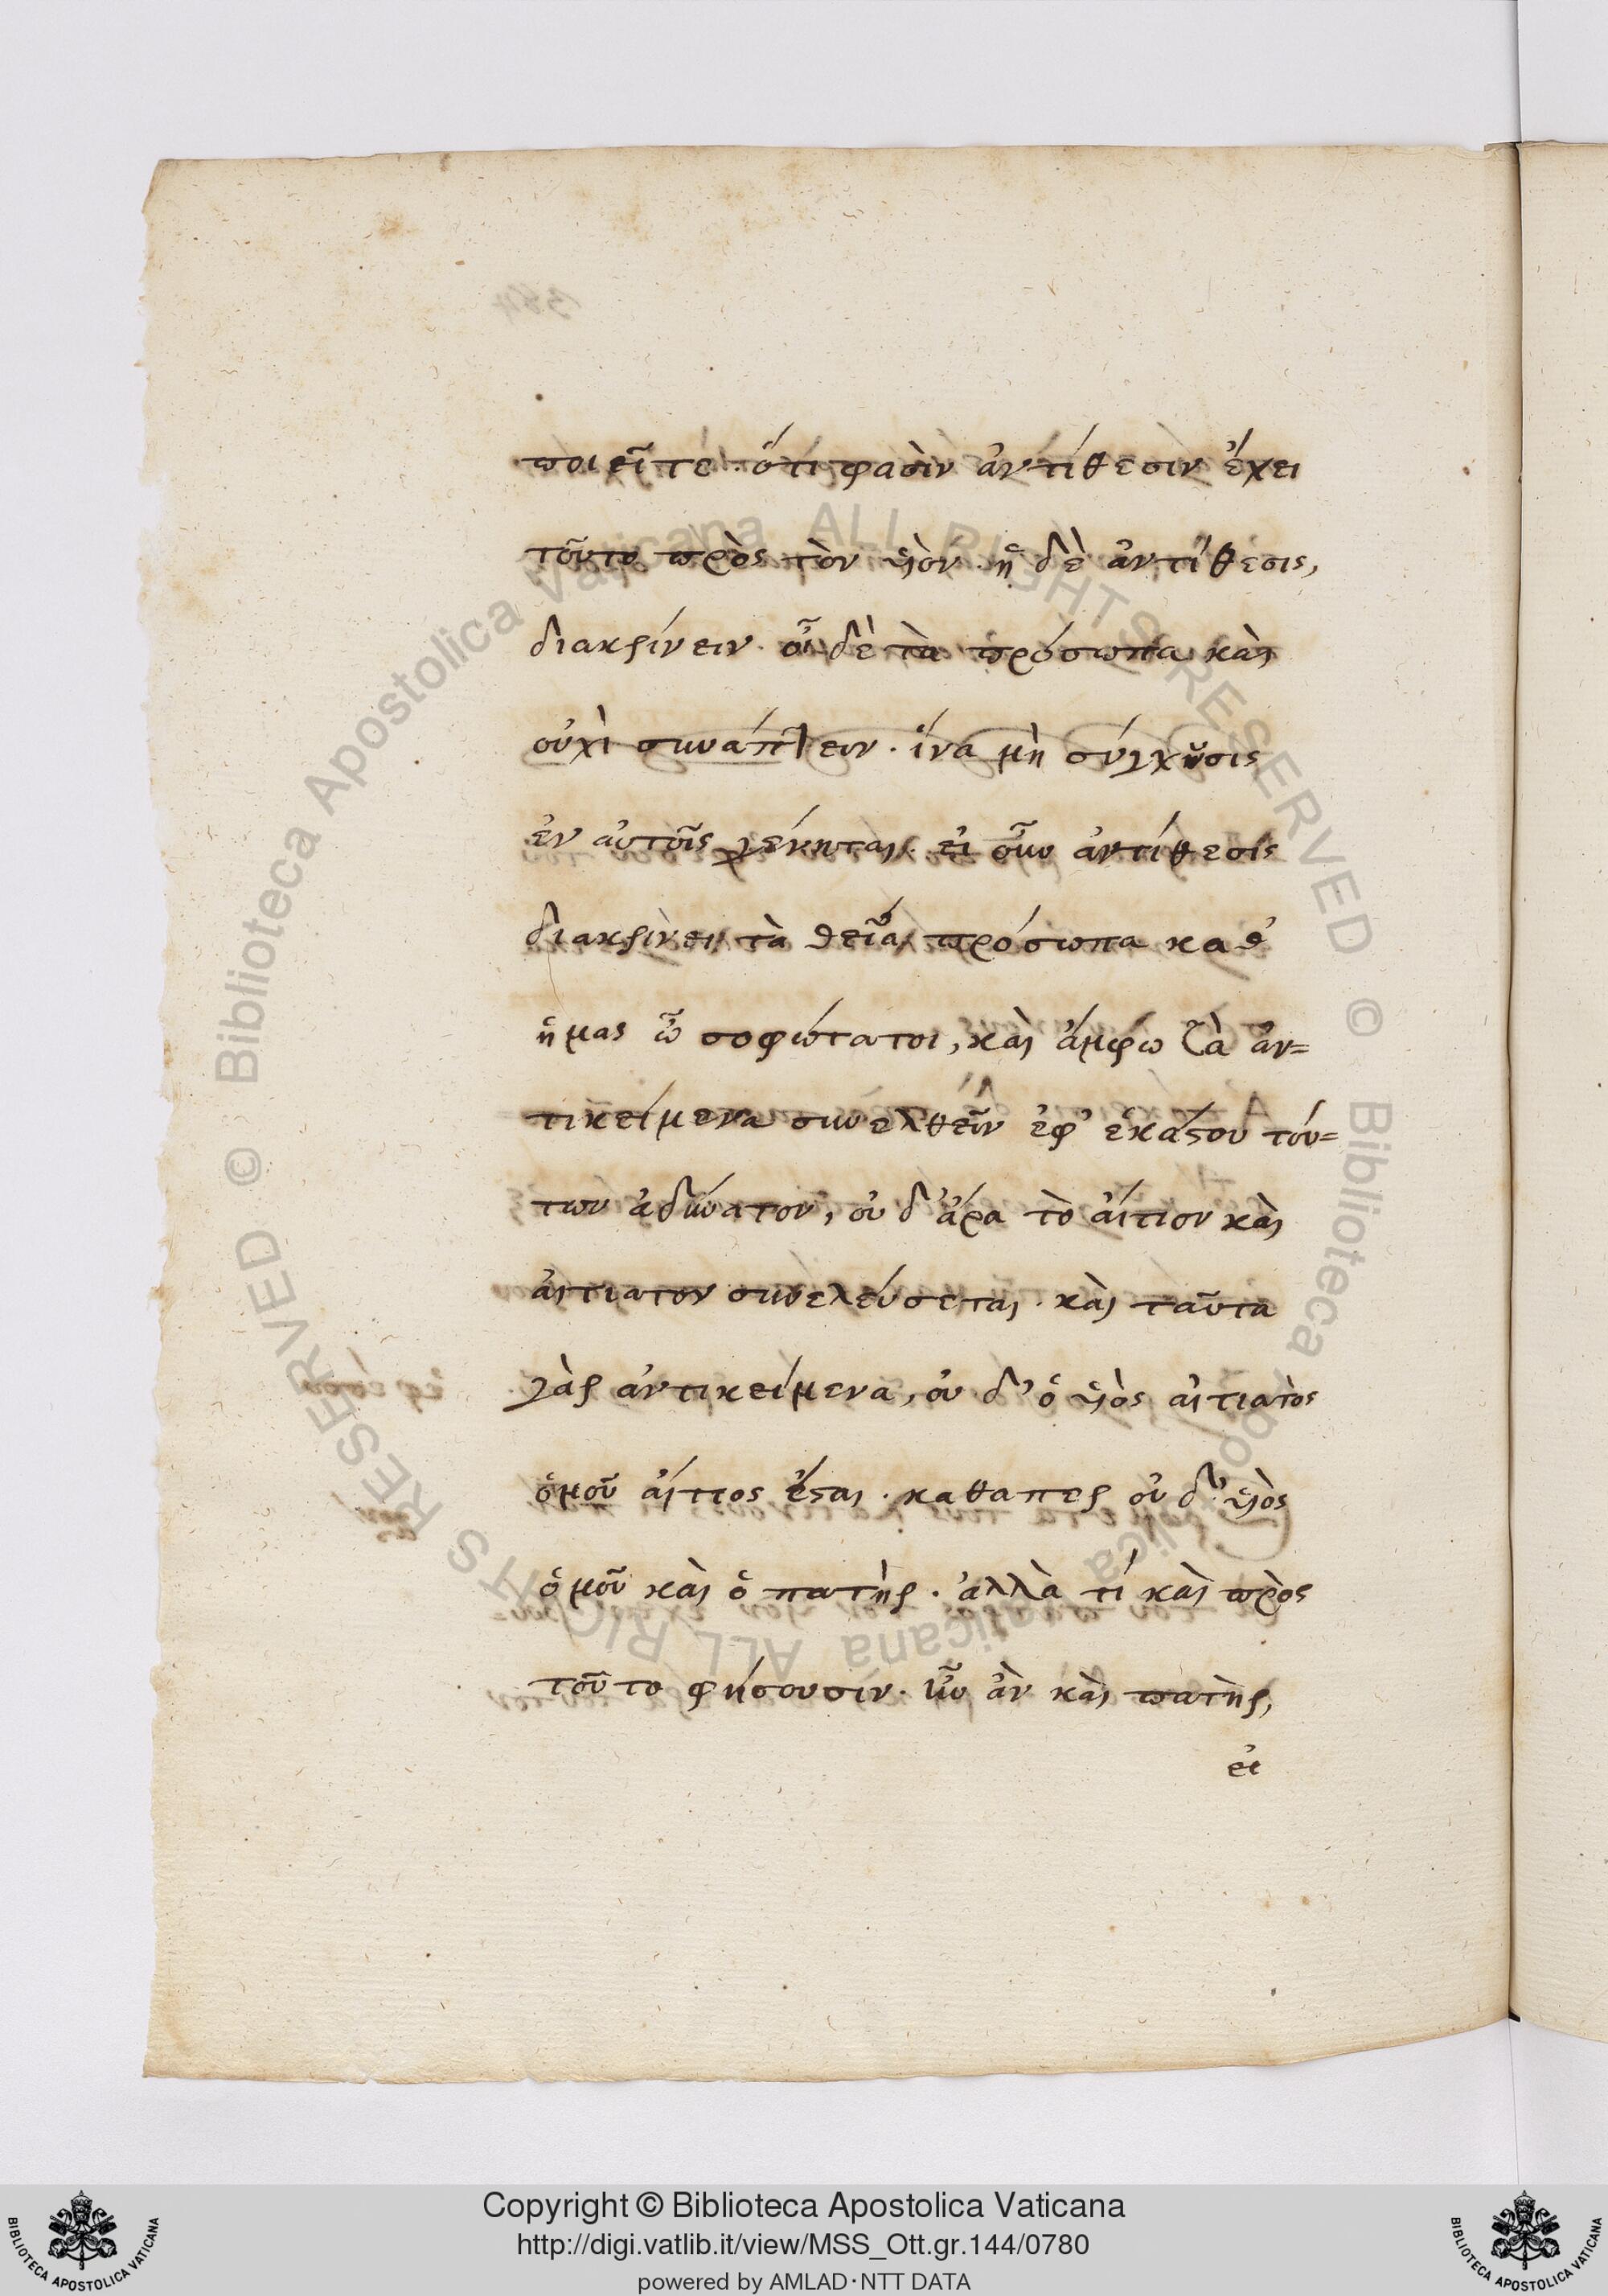 ποιεῖτε. ὅτι φασὶν ἀντίθεσιν ἔχει
τοῦτο πρὸς τὸν υἱὸν. ἡ δὲ ἀντίθεσις,
διακρίνειν. οἶδε τὰ πρόσωπα καὶ
οὐχὶ συνάπτειν. ἵνα μὴ σύγχυσις
ἐν αὐτοῖς γένηται. εἰ οὖν ἀντίθεσις
διακρίνει τὰ θεῖα πρόσωπα καθ'
ἡμας ὦ σοφώτατοι, καὶ ἄμφω τὰ ἀν=
τικείμενα συνελθεῖν ἐφ' ἑκάστου τού=
των ἀδύνατον, οὐδ' ἄρα τὸ αἴτιον καὶ
αἰτιατον συνελεύσεται. καὶ ταῦτα
γὰρ ἀντικείμενα, οὐδ' ὁ υἱὸς αἰτιατὸς
ὁμοῦ αἴτιος ἔσται. καθαπερ οὐδ' υἱὸς
ὁμοῦ καὶ ὁ πατὴρ. ἀλλὰ τί καὶ πρὸς
τοῦτο φήσουσιν. ἦν ἂν καὶ πατὴρ,
εἰ
© Biblioteca Apostolica Vaticana ALL RIGHTS RESERVED © Biblioteca Apostolica Vaticana ALL RIGHTS RESERVED
Copyright © Biblioteca Apostolica Vaticana
http://digi.vatlib.it/view/MSS_Ott.gr.144/0780
powered by AMLAD·NTT DATA
BIBLIOTECA APOSTOLICA VATICANA
BIBLIOTECA APOSTOLICA VATICANA